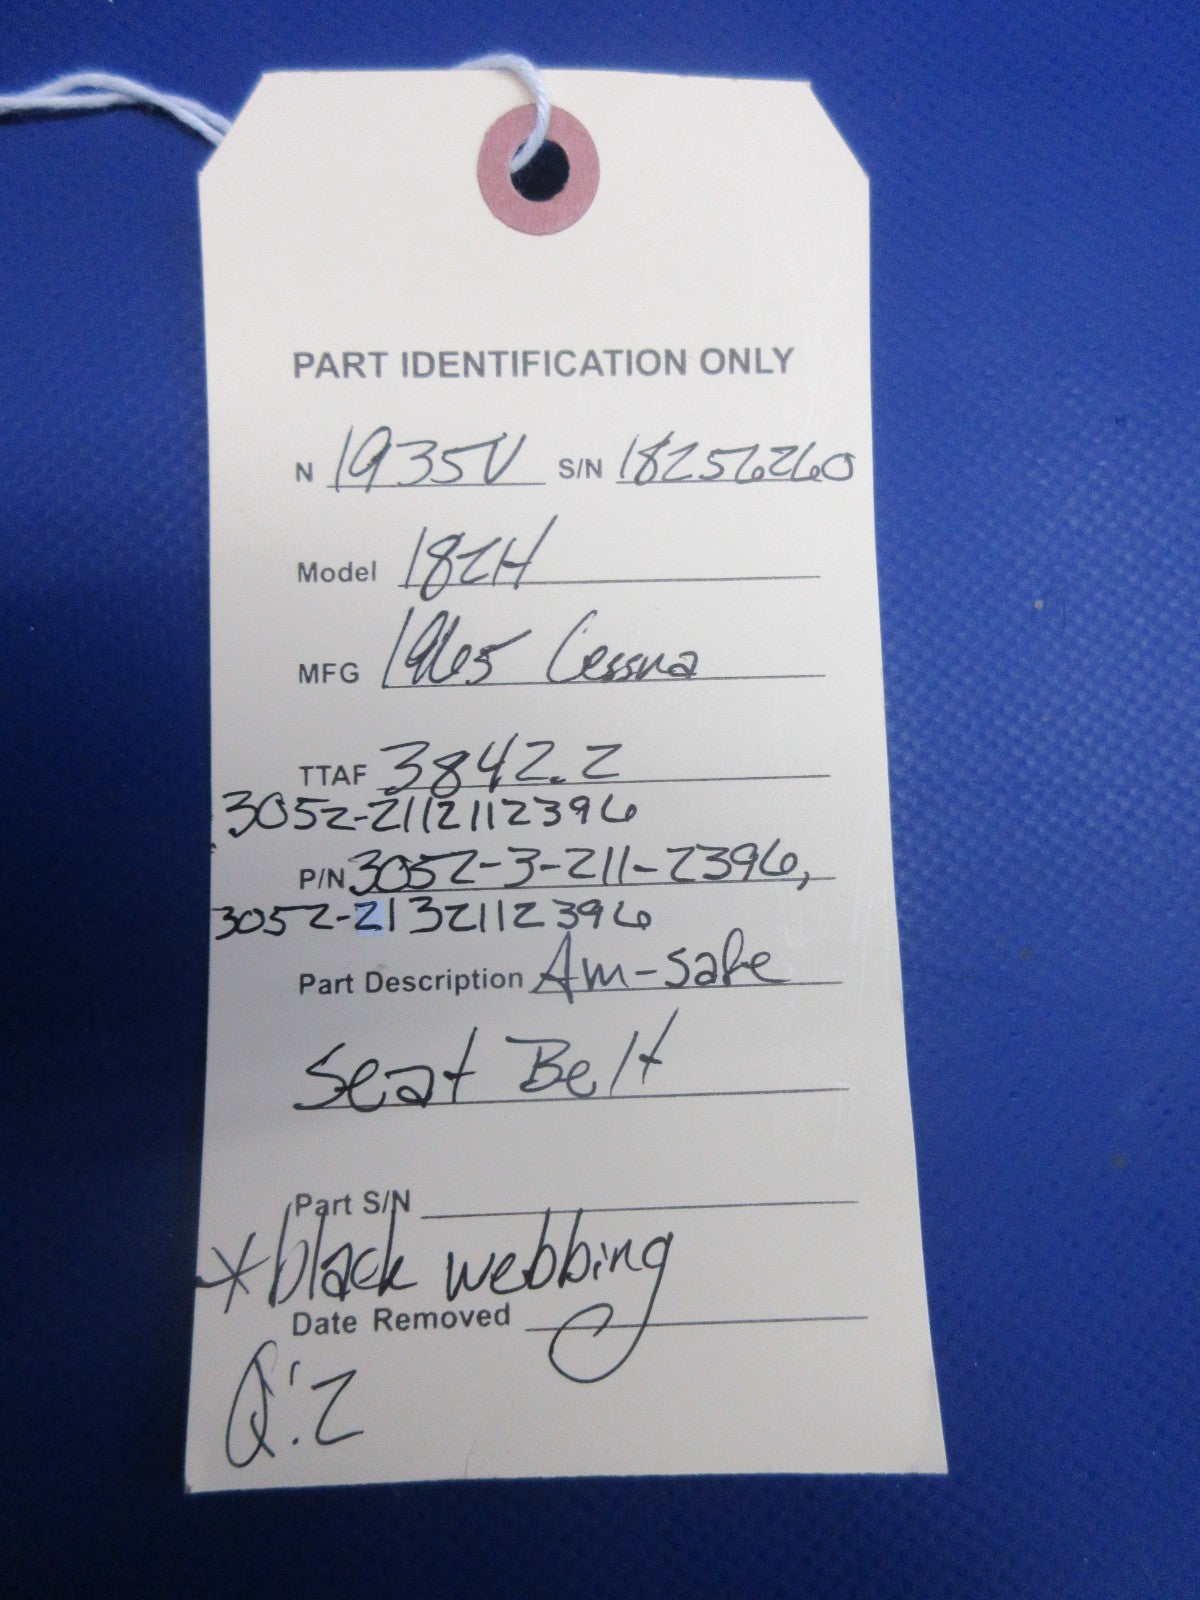 PART IDENTIFICATION ONLY
N 1935V S/N 18256260
Model 182H
MFG 1965 Cessna
TTAF 3842.2
3052-21121122396
P/N 3052-3-211-2396,
3052-21321122396
Part Description Am-safe
Seat Belt
Part S/N
*black webbing
Date Removed
Q:2